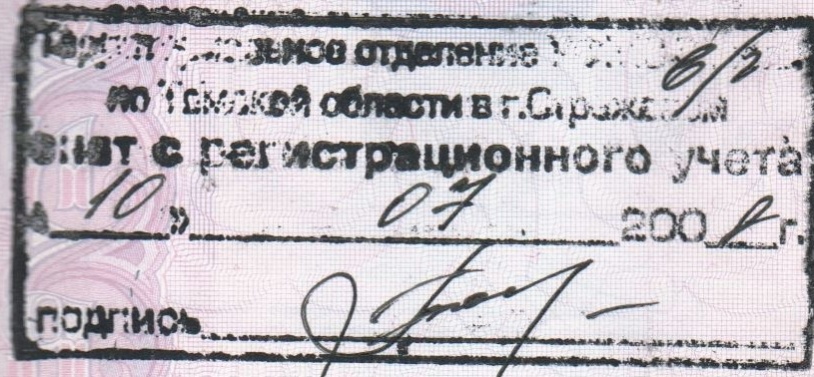 отделение 6/2
по Томской области в г.Стрежевом
снят с регистрационного учета
«10» 07 2008 г.
подпись